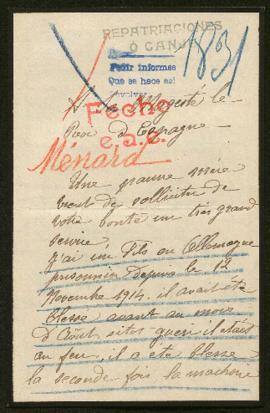 REPATRIACIONES
Ó CANJE
1831
Pedir informes
Que se hace así
A Sa Majesté le
Fecho
Roi d'Espagne
Ménard
Une pauvre mère
vient de sollicitre de
votre bonté un très grand
service
J'ai un Fils en Allemagne
prisonnier Depuis le 12
Novembre 1914, il avait été
Blessé avant au mois
d'Août, sitot guéri il était
au feu, il a été blessé
la seconde fois la machoire